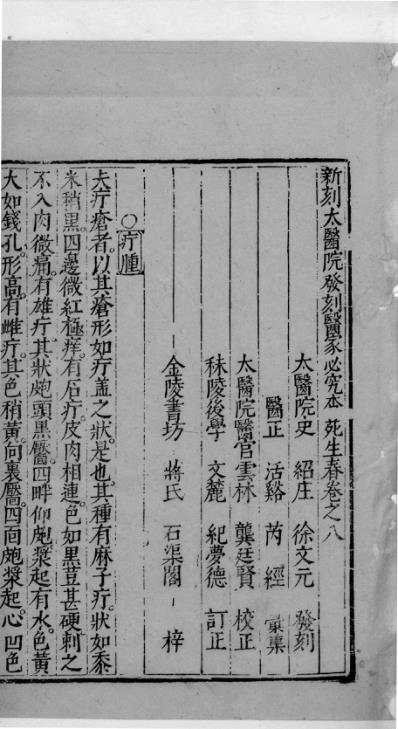 新刻太醫院發刻醫家必究本 死生春卷之八
太醫院史 紹庄 徐文元 發刻
醫正 活谿 芮 經 彙集
太醫院醫官雲林 龔廷賢 校正
秣陵後學 文麓 紀夢德 訂正
金陵書坊 蔣氏 石渠閣 梓
○疔腫
夫疔瘡者。以其瘡形如疔盖之狀。是也。其種有麻子疔。狀如黍
米稍黑。四邊微紅極痒。有石疔皮肉相連色如黑荳甚硬刺之
不入肉微痛。有雄疔。其狀皰頭黑黶。四畔仰皰漿起有水。色黃
大如錢孔。形高。有雌疔。其色稍黃。向裏黶。四面皰漿起。心凹色